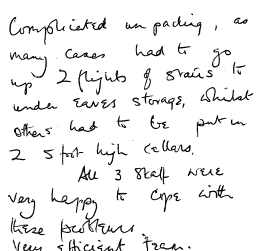 Complicated un packing, as
many cases had to go
up 2 flights of stairs to
under eaves storage, whilst
others had to be put in
2 5 foot high cellars.
All 3 staff were
very happy to cope with
these problems.
Very efficient team.